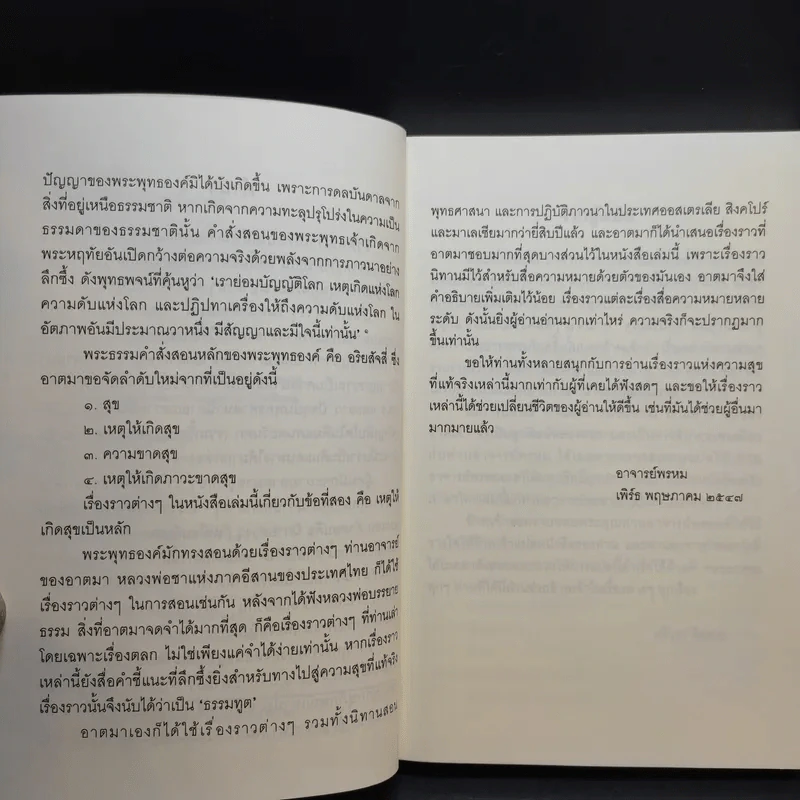 ปัญญาของพระพุทธองค์มิได้บังเกิดขึ้น เพราะการดลบันดาลจาก
สิ่งที่อยู่เหนือธรรมชาติ หากเกิดจากความทะลุปรุโปร่งในความเป็น
ธรรมดาของธรรมชาตินั้น คำสั่งสอนของพระพุทธเจ้าเกิดจาก
พระหฤทัยอันเปิดกว้างต่อความจริงด้วยพลังจากการภาวนาอย่าง
ลึกซึ้ง ดังพุทธพจน์ที่คุ้นหูว่า ‘เราย่อมบัญญัติโลก เหตุเกิดแห่งโลก
ความดับแห่งโลก และปฏิปทาเครื่องให้ถึงความดับแห่งโลก ใน
อัตภาพอันมีประมาณวาหนึ่ง มีสัญญาและมีใจนี้เท่านั้น’
พระธรรมคำสั่งสอนหลักของพระพุทธองค์ คือ อริยสัจสี่ ซึ่ง
อาตมาขอจัดลำดับใหม่จากที่เป็นอยู่ดังนี้
๑. สุข
๒. เหตุให้เกิดสุข
๓. ความขาดสุข
๔. เหตุให้เกิดภาวะขาดสุข
เรื่องราวต่างๆ ในหนังสือเล่มนี้เกี่ยวกับข้อที่สอง คือ เหตุให้
เกิดสุขเป็นหลัก
พระพุทธองค์มักทรงสอนด้วยเรื่องราวต่างๆ ท่านอาจารย์
ของอาตมา หลวงพ่อชาแห่งภาคอีสานของประเทศไทย ก็ได้ใช้
เรื่องราวต่างๆ ในการสอนเช่นกัน หลังจากได้ฟังหลวงพ่อบรรยาย
ธรรม สิ่งที่อาตมาจดจำได้มากที่สุด ก็คือเรื่องราวต่างๆ ที่ท่านเล่า
โดยเฉพาะเรื่องตลก ไม่ใช่เพียงแค่จำได้ง่ายเท่านั้น หากเรื่องราว
เหล่านี้ยังสื่อคำชี้แนะที่ลึกซึ้งยิ่งสำหรับทางไปสู่ความสุขที่แท้จริง
เรื่องราวนั้นจึงนับได้ว่าเป็น ‘ธรรมทูต’
อาตมาเองก็ได้ใช้เรื่องราวต่างๆ รวมทั้งนิทานสอน
พุทธศาสนา และการปฏิบัติภาวนาในประเทศออสเตรเลีย สิงคโปร์
และมาเลเซียมากว่ายี่สิบปีแล้ว และอาตมาก็ได้นำเสนอเรื่องราวที่
อาตมาชอบมากที่สุดบางส่วนไว้ในหนังสือเล่มนี้ เพราะเรื่องราว
นิทานมีไว้สำหรับสื่อความหมายด้วยตัวของมันเอง อาตมาจึงใส่
คำอธิบายเพิ่มเติมไว้น้อย เรื่องราวแต่ละเรื่องสื่อความหมายหลาย
ระดับ ดังนั้นยิ่งผู้อ่านอ่านมากเท่าไหร่ ความจริงก็จะปรากฏมาก
ขึ้นเท่านั้น
ขอให้ท่านทั้งหลายสนุกกับการอ่านเรื่องราวแห่งความสุข
ที่แท้จริงเหล่านี้มากเท่ากับผู้ที่เคยได้ฟังสดๆ และขอให้เรื่องราว
เหล่านี้ได้ช่วยเปลี่ยนชีวิตของผู้อ่านให้ดีขึ้น เช่นที่มันได้ช่วยผู้อื่นมา
มากมายแล้ว
อาจารย์พรหม
เพิร์ธ พฤษภาคม ๒๕๔๗